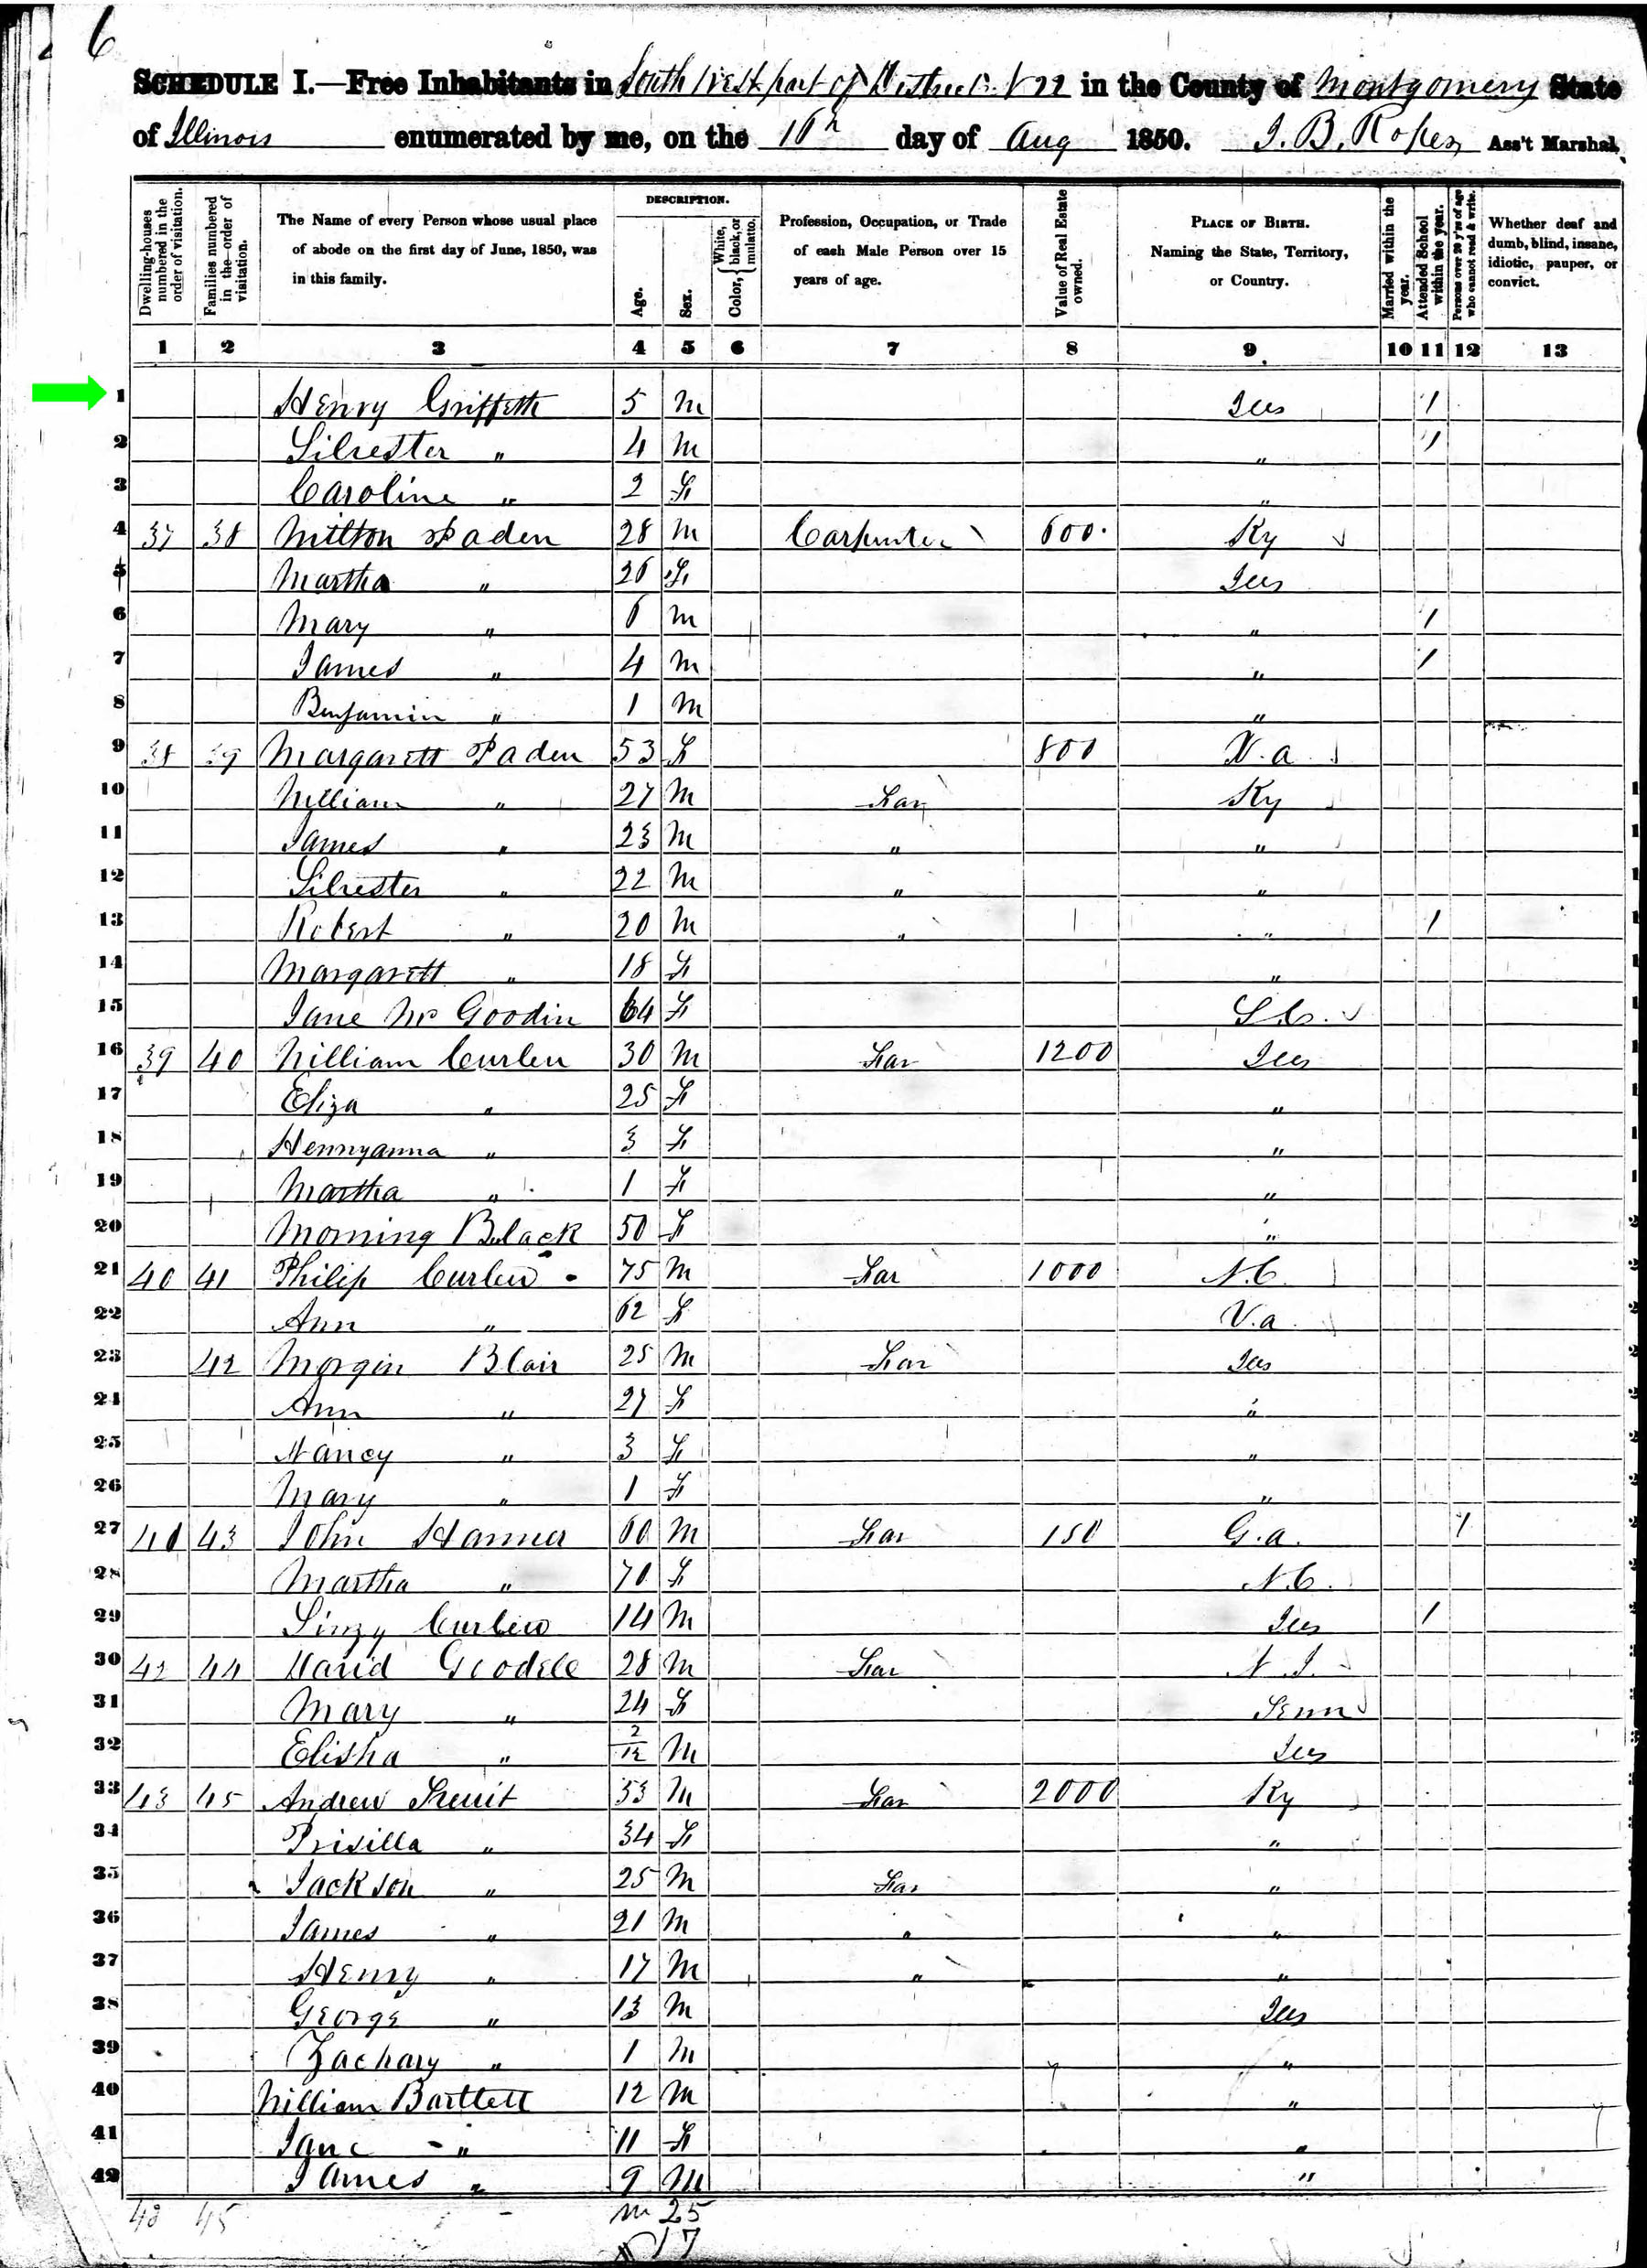 6
SCHEDULE I.—Free Inhabitants in South West part of District N 22 in the County of Montgomery State
of Illinois enumerated by me, on the 16th day of Aug 1850. J. B. Ass't Marshal.
Dwelling-houses numbered in the order of visitation. Families numbered in the order of visitation. The Name of every Person whose usual place of abode on the first day of June, 1850, was in this family. DESCRIPTION. Age. Sex. Color, { White, black, or mulatto. Profession, Occupation, or Trade of each Male Person over 15 years of age. Value of Real Estate owned. PLACE OF BIRTH. Naming the State, Territory, or Country. Married within the year. Attended School within the year. Persons over 20 y'rs of age who cannot read & write. Whether deaf and dumb, blind, insane, idiotic, pauper, or convict.
1 2 3 4 5 6 7 8 9 10 11 12 13
1 Henry Griffeth 5 M Ills /
2 Silvester " 4 M " /
3 Caroline " 2 F "
4 37 38 Milton Paden 28 M Carpenter 600 Ky
5 Martha " 26 F Ills
6 Mary " 6 M " /
7 James " 4 M " /
8 Benjamin " 1 M "
9 38 39 Margarett Paden 53 F 800 V.a
10 William " 27 M Far Ky
11 James " 23 M " "
12 Silvester " 22 M " "
13 Robert " 20 M " " /
14 Margarett " 18 F "
15 Jane Mc Goodin 64 F S.C.
16 39 40 William Curlew 30 M Far 1200 Ills
17 Eliza " 25 F "
18 Hennyanna " 3 F "
19 Martha " 1 F "
20 Morning Black 50 F "
21 40 41 Philip Curlew 75 M Far 1000 N.C.
22 Ann " 62 F V.a.
23 42 Morgin Blair 25 M Far Ills
24 Ann " 27 F "
25 Nancy " 3 F "
26 Mary " 1 F "
27 41 43 John Hanna 60 M Far 150 G.a. /
28 Martha " 70 F N.C.
29 Linzy Curlew 14 M Ills /
30 42 44 David Goodell 28 M Far N.J.
31 Mary " 24 F Tenn
32 Elisha " 2/12 M Ills
33 43 45 Andrew 53 M Far 2000 Ky
34 Prisilla " 34 F "
35 Jackson " 25 M Far "
36 James " 21 M " "
37 Henry " 17 M " "
38 George " 13 M Ills
39 Zachary " 1 M "
40 William Bartlett 12 M "
41 Jane " 11 F "
42 James " 9 M "
45 M 25
17